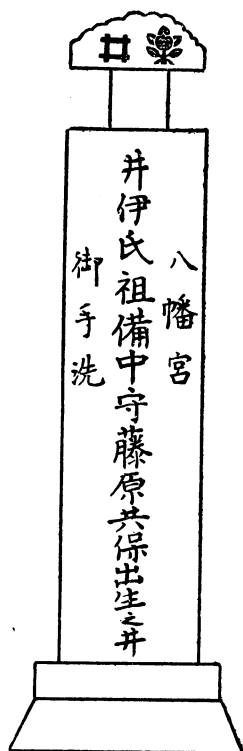 八幡宮
井伊氏祖備中守藤原共保出生之井
御手洗